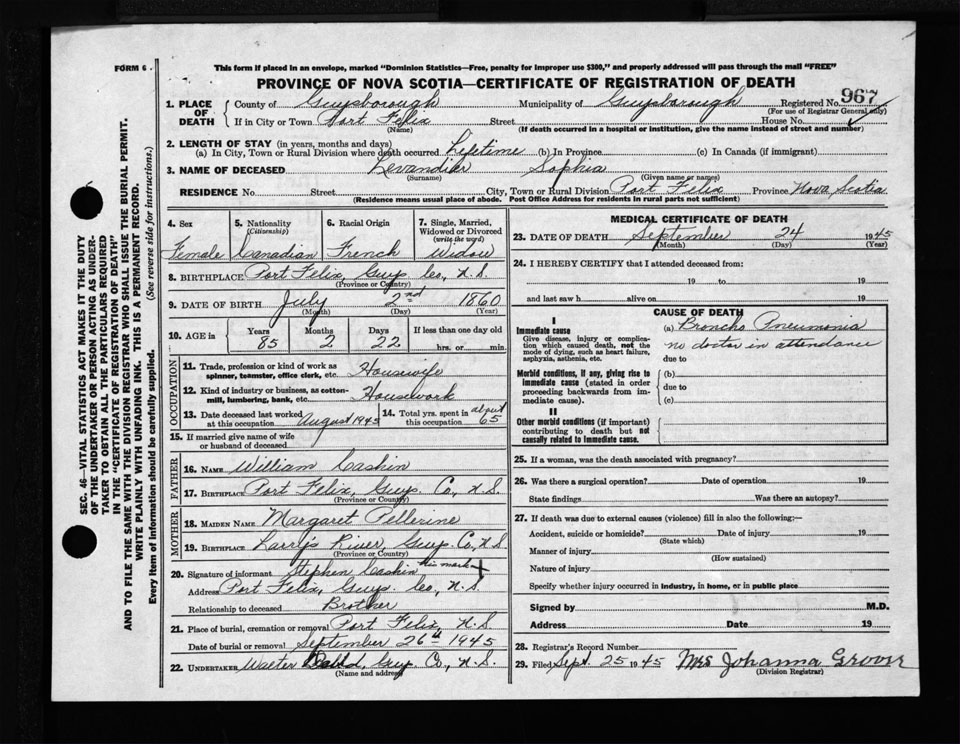 FORM 6.
This form if placed in an envelope, marked "Dominion Statistics—Free, penalty for improper use $300," and properly addressed will pass through the mail "FREE"
PROVINCE OF NOVA SCOTIA—CERTIFICATE OF REGISTRATION OF DEATH
1. PLACE OF DEATH
County of Guysborough Municipality of Guysborough Registered No. 967
(For use of Registrar General only)
If in City or Town Port Felix Street House No.
(Name) (If death occurred in a hospital or institution, give the name instead of street and number)
2. LENGTH OF STAY (in years, months and days)
(a) In City, Town or Rural Division where death occurred Lifetime (b) In Province (c) In Canada (if immigrant)
3. NAME OF DECEASED Sophia
(Surname) (Given name or names)
RESIDENCE No. Street City, Town or Rural Division Port Felix Province Nova Scotia
(Residence means usual place of abode. Post Office Address for residents in rural parts not sufficient)
4. Sex
Female
5. Nationality
(Citizenship)
Canadian
6. Racial Origin
French
7. Single, Married, Widowed or Divorced
(write the word)
Widow
8. BIRTHPLACE Port Felix, Guys Co, N.S.
(Province or Country)
9. DATE OF BIRTH July 2nd 1860
(Month) (Day) (Year)
10. AGE in
Years Months Days If less than one day old
85 2 22 hrs. or min.
OCCUPATION
11. Trade, profession or kind of work as spinner, teamster, office clerk, etc. Housewife
12. Kind of industry or business, as cotton-mill, lumbering, bank, etc. Housework
13. Date deceased last worked at this occupation August 1945
14. Total yrs. spent in this occupation about 65
15. If married give name of wife or husband of deceased
FATHER
16. NAME William Cashin
17. BIRTHPLACE Port Felix, Guys. Co, N.S.
(Province or Country)
MOTHER
18. MAIDEN NAME Margaret Pellerine
19. BIRTHPLACE Larry's River, Guys Co, N.S
(Province or Country)
20. Signature of informant Stephen Cashin his mark X
Address Port Felix, Guys. Co, N.S.
Relationship to deceased Brother
21. Place of burial, cremation or removal Port Felix, N.S.
Date of burial or removal September 26th 1945
22. UNDERTAKER Walter Guy Co, N.S.
(Name and address)
MEDICAL CERTIFICATE OF DEATH
23. DATE OF DEATH September 24 1945
(Month) (Day) (Year)
24. I HEREBY CERTIFY that I attended deceased from:
19 to 19
and last saw h alive on 19
CAUSE OF DEATH
I
Immediate cause
Give disease, injury or complication which caused death, not the mode of dying, such as heart failure, asphyxia, asthenia, etc.
(a) Broncho Pneumonia
no doctor in attendance
due to
Morbid conditions, if any, giving rise to immediate cause (stated in order proceeding backwards from immediate cause).
(b)
due to
(c)
II
Other morbid conditions (if important) contributing to death but not causally related to immediate cause.
25. If a woman, was the death associated with pregnancy?
26. Was there a surgical operation? Date of operation 19
State findings Was there an autopsy?
27. If death was due to external causes (violence) fill in also the following:—
Accident, suicide or homicide? Date of injury 19
(State which)
Manner of injury
(How sustained)
Nature of injury
Specify whether injury occurred in industry, in home, or in public place
Signed by M.D.
Address Date 19
28. Registrar's Record Number
29. Filed Sept. 25 1945 Mrs Johanna
(Division Registrar)
SEC. 46—VITAL STATISTICS ACT MAKES IT THE DUTY
OF THE UNDERTAKER OR PERSON ACTING AS UNDER-
TAKER TO OBTAIN ALL THE PARTICULARS REQUIRED
IN THE "CERTIFICATE OF REGISTRATION OF DEATH"
AND TO FILE THE SAME WITH THE DIVISION REGISTRAR WHO SHALL ISSUE THE BURIAL PERMIT.
WRITE PLAINLY WITH UNFADING INK. THIS IS A PERMANENT RECORD.
Every item of information should be carefully supplied. (See reverse side for instructions.)